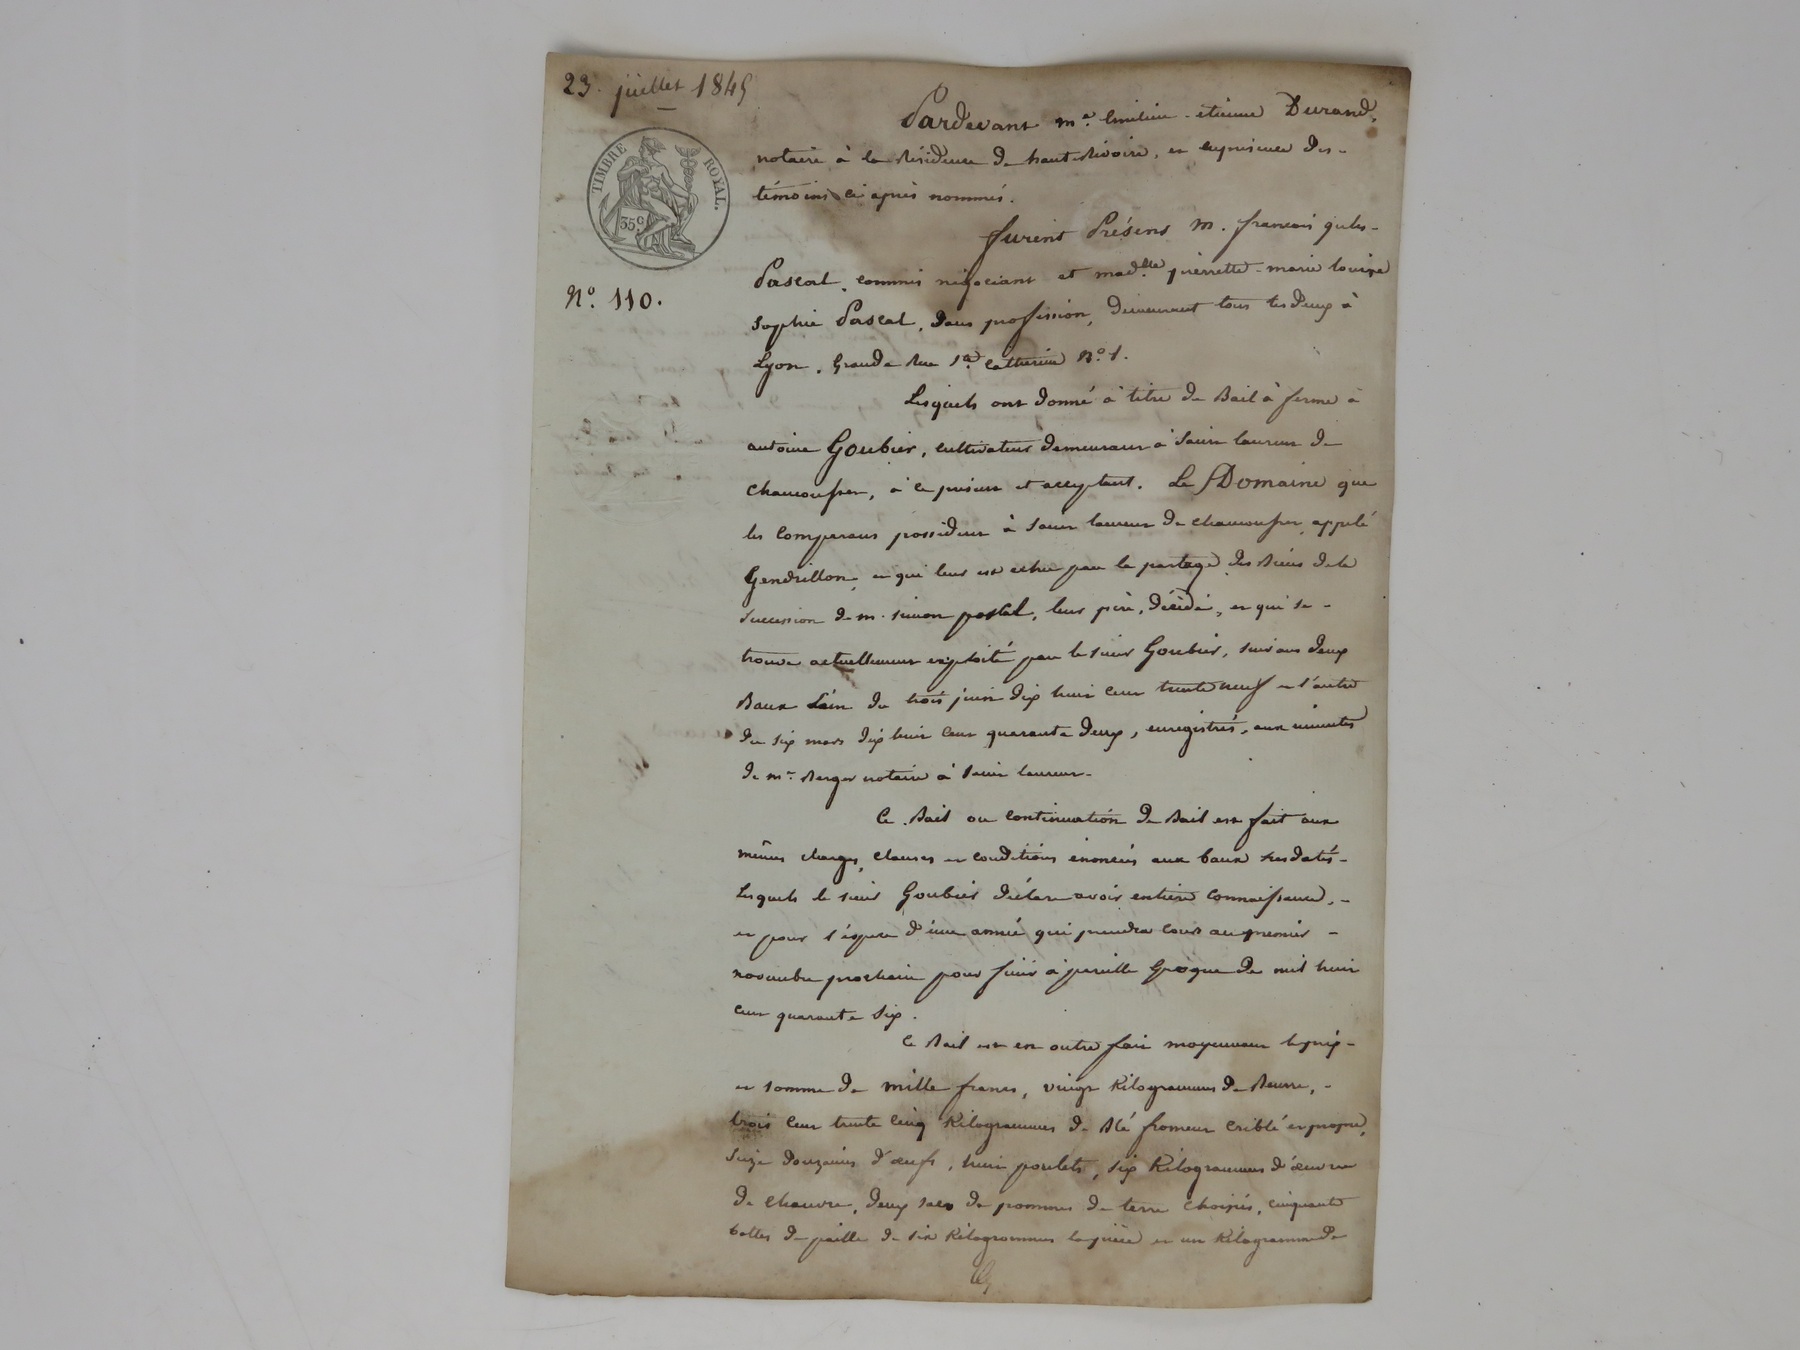 23. juillet 1845
TIMBRE ROYAL.
35c
N.o 110.
Pardevant me. Emilien-etienne Durand,
notaire à la Résidence de haute Rivoire, et en présence des-
témoins ci après nommés.
furent Présens M. francois jules-
Pascal, commis négociant et madlle. pierrette-marie louise
Sophie Pascal, sans profession, demeurant tous les deux à
Lyon, Grande Rue Ste. Catherine No. 1.
Lesquels ont donné à titre de Bail à ferme à
antoine Goubier, cultivateur demeurant à Saint laurent de
chamousset, à ce présent et acceptant. Le Domaine que
les comparans possèdent à Saint laurent de chamousset, appelé
Gendrillon, et qui leur est echu par le partage des Biens de la
succession de m. simon pascal, leur père, décédé, et qui se-
trouve actuellement exploité par le sieur Goubier, suivant deux
Baux L'un du trois juin dix huit cent trente neuf et l'autre
du six mars dix huit cent quarante deux, enregistrés, aux minutes
de me. Berger notaire à Saint laurent-
Ce Bail ou continuation de Bail est fait aux
mêmes charges, clauses et conditions énoncées aux baux susdatés-
Lesquels le sieur Goubier déclare avoir entière connaissance,-
et pour l'espace d'une année qui prendra cours au premier-
novembre prochain pour finir à pareille époque de mil huit
cent quarante six.
Ce Bail est en outre fait moyennant le prix-
et somme de mille francs, vingt Kilogrammes de Beurre,-
trois cent trente cinq Kilogrammes de Blé froment criblé et propre,
seize douzaines d'œufs, huit poulets, six Kilogrammes d'œuvre
de chanvre, deux sacs de pommes de terre choisies, cinquante
bottes de paille de six Kilogrammes la pièce et un Kilogramme de